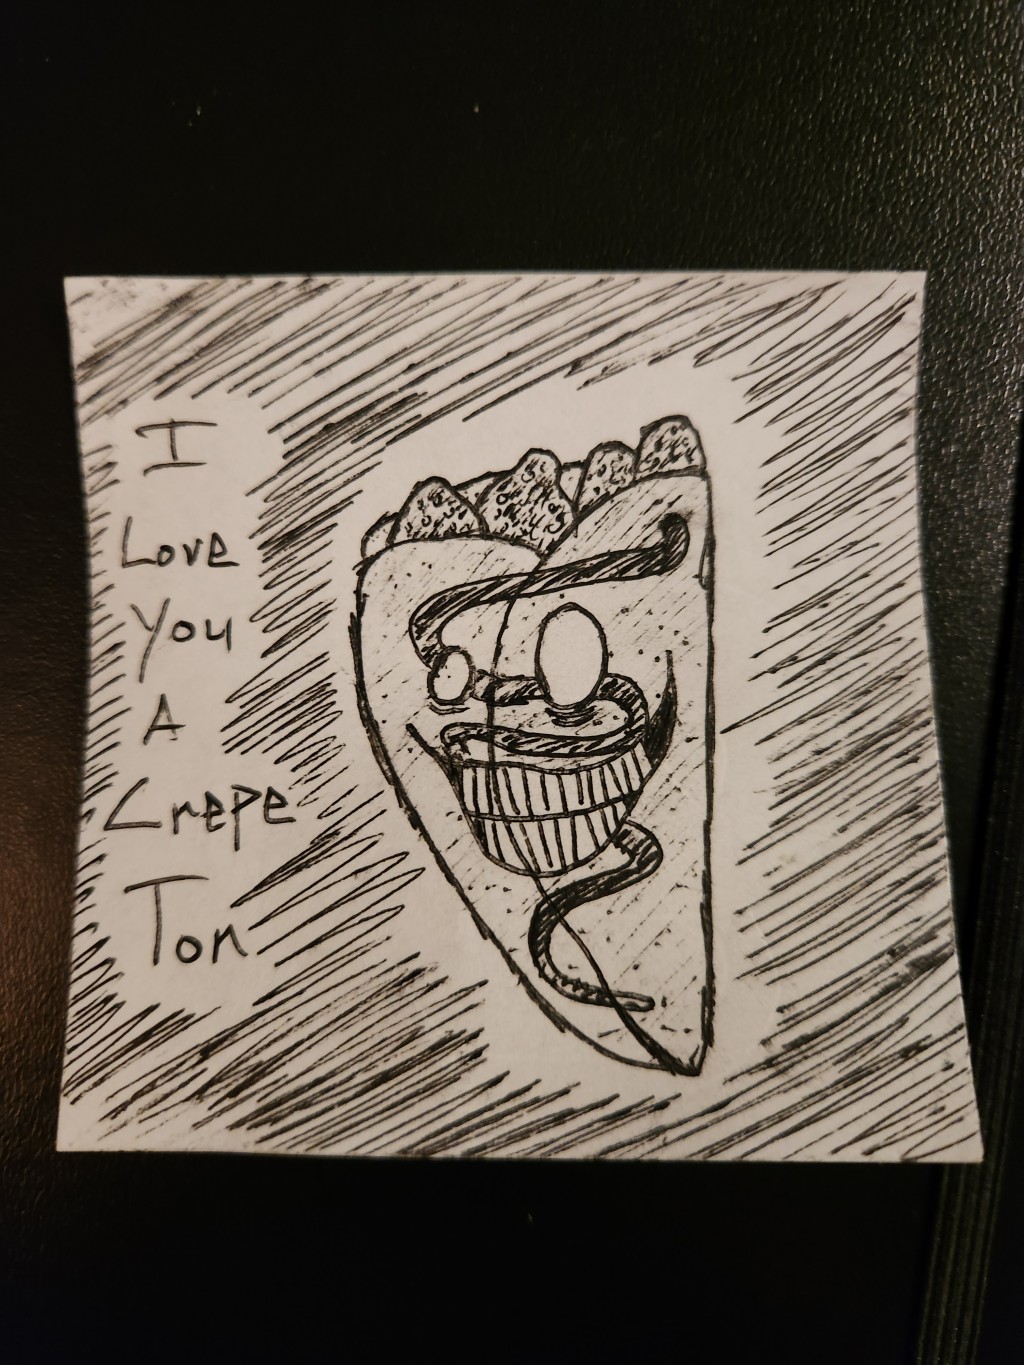 I
Love
You
A
Crepe
Ton